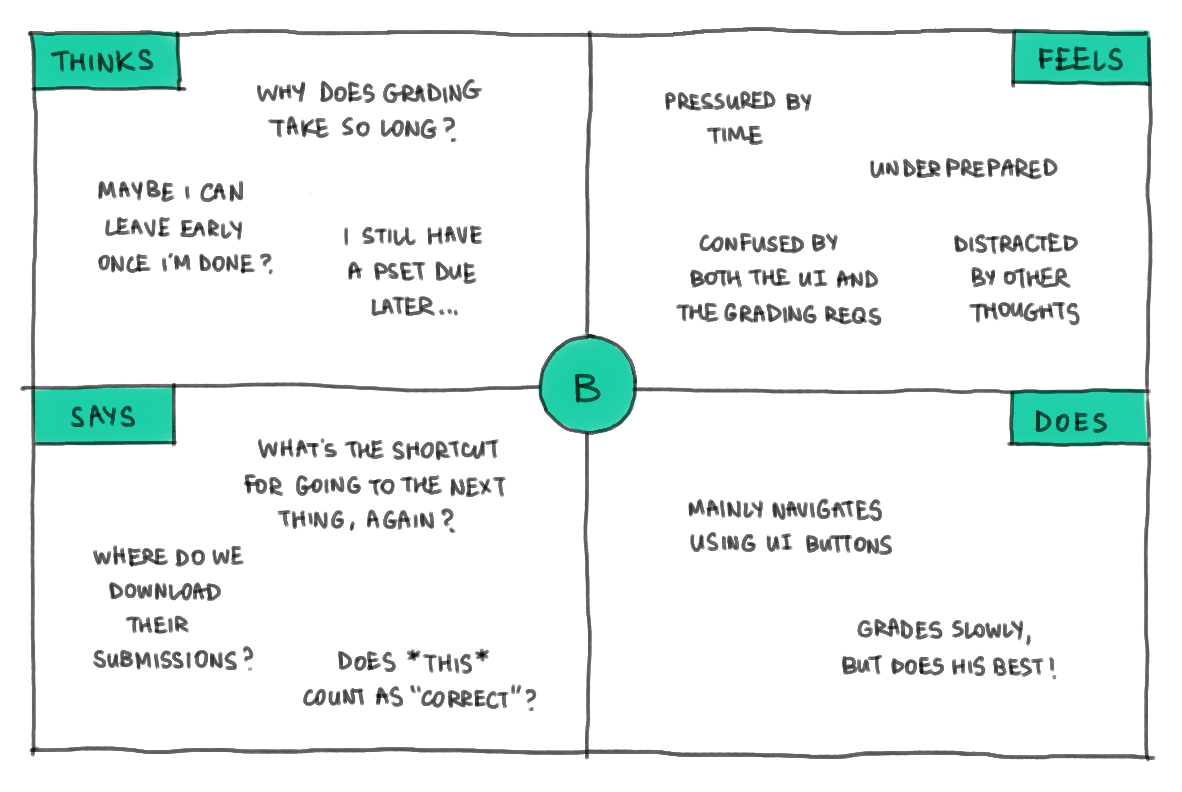 THINKS
WHY DOES GRADING
TAKE SO LONG?
MAYBE I CAN
LEAVE EARLY
ONCE I'M DONE?
I STILL HAVE
A PSET DUE
LATER...
FEELS
PRESSURED BY
TIME
UNDERPREPARED
CONFUSED BY
BOTH THE UI AND
THE GRADING REQS
DISTRACTED
BY OTHER
THOUGHTS
B
SAYS
WHAT'S THE SHORTCUT
FOR GOING TO THE NEXT
THING, AGAIN?
WHERE DO WE
DOWNLOAD
THEIR
SUBMISSIONS?
DOES *THIS*
COUNT AS "CORRECT"?
DOES
MAINLY NAVIGATES
USING UI BUTTONS
GRADES SLOWLY,
BUT DOES HIS BEST!